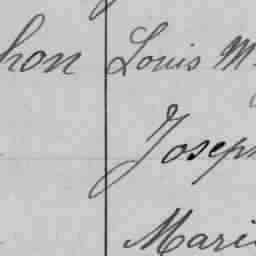 hon Louis M.
Joseph
Marie